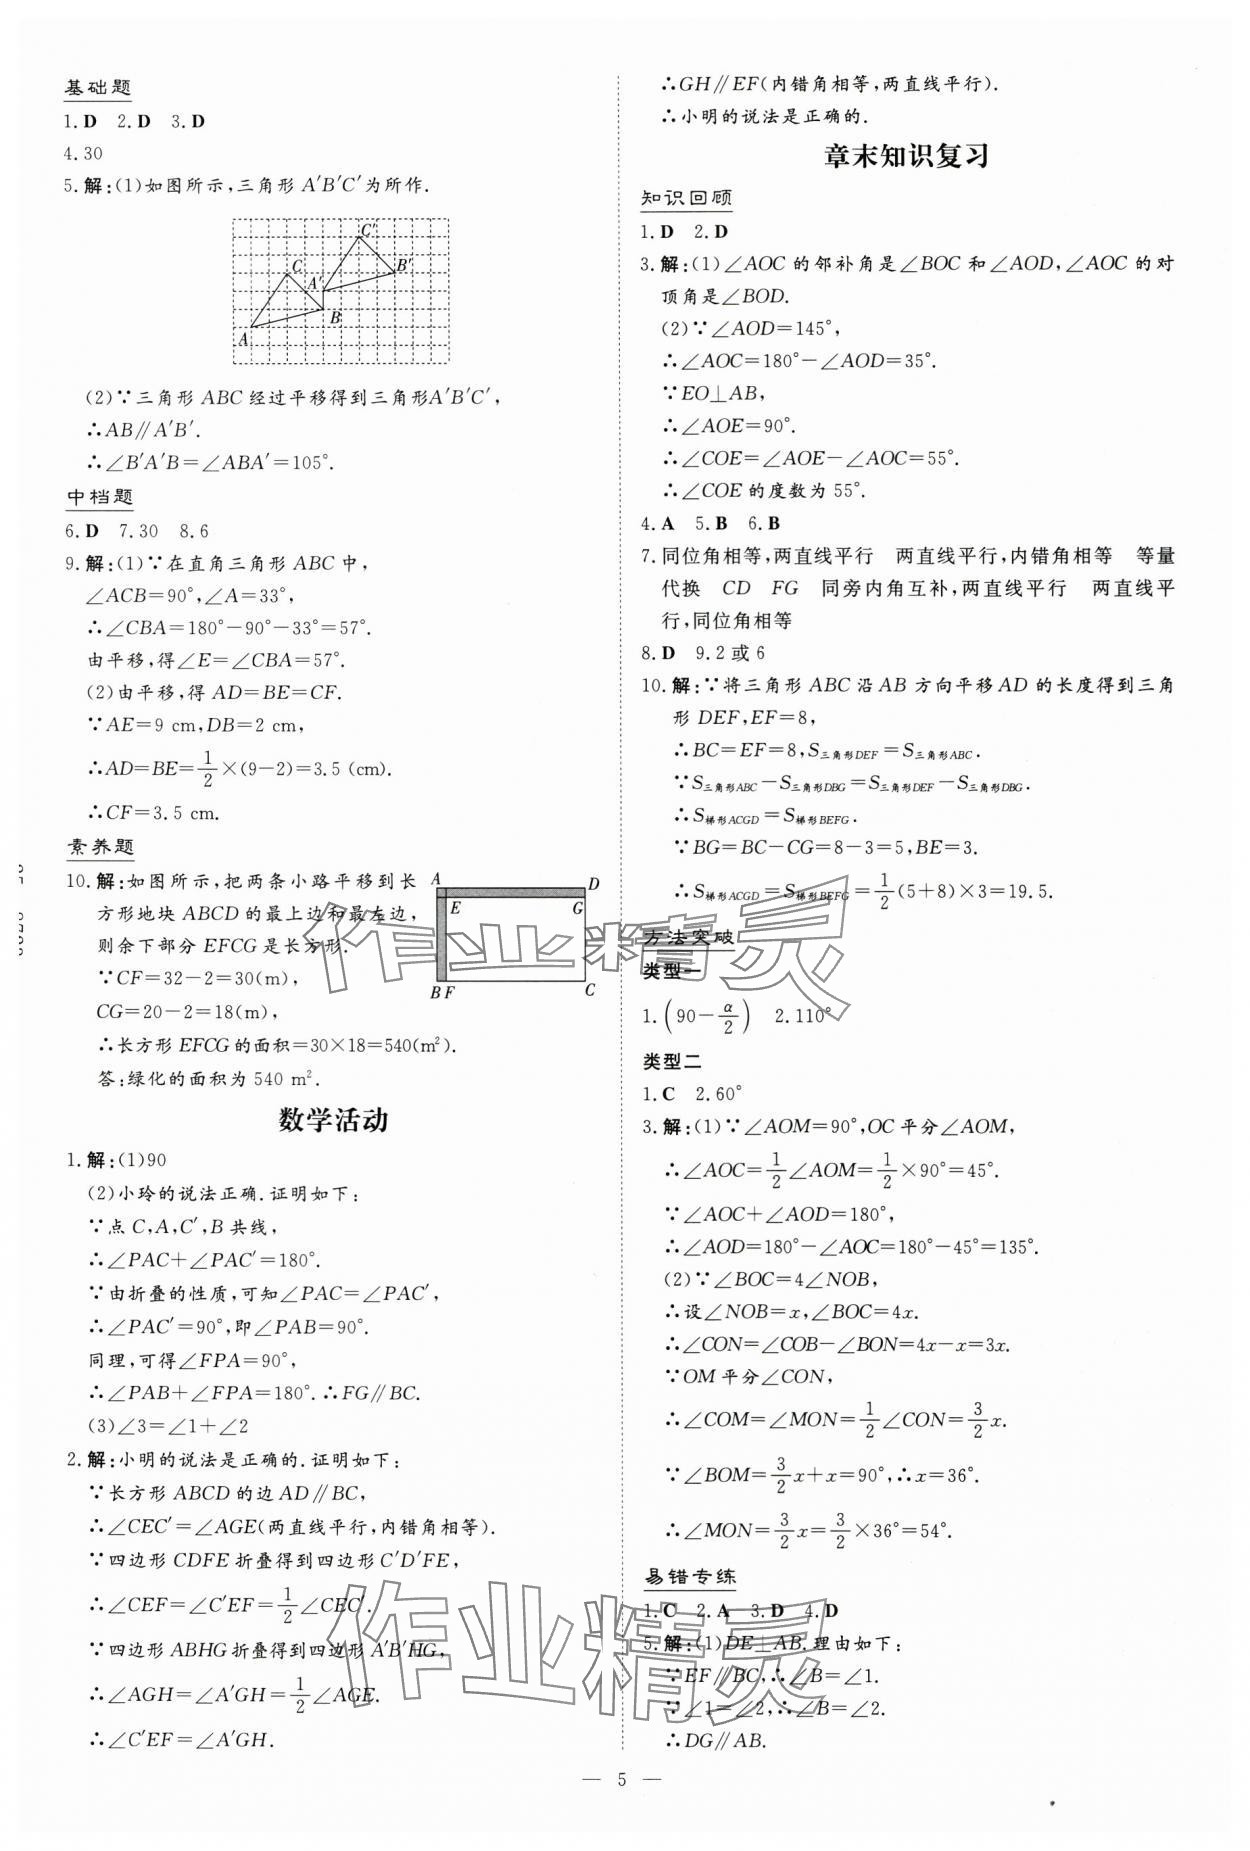 基础题
1.D 2.D 3.D
4.30
5.解:(1)如图所示,三角形 A′B′C′为所作.
C′
C
B′
A′
B
A
(2)∵三角形 ABC 经过平移得到三角形A′B′C′,
∴AB∥A′B′.
∴∠B′A′B=∠ABA′=105°.
中档题
6.D 7.30 8.6
9.解:(1)∵在直角三角形 ABC 中,
∠ACB=90°,∠A=33°,
∴∠CBA=180°-90°-33°=57°.
由平移,得∠E=∠CBA=57°.
(2)由平移,得 AD=BE=CF.
∵AE=9 cm,DB=2 cm,
∴AD=BE=1/2×(9-2)=3.5 (cm).
∴CF=3.5 cm.
素养题
10.解:如图所示,把两条小路平移到长
方形地块 ABCD 的最上边和最左边,
则余下部分 EFCG 是长方形.
∵CF=32-2=30(m),
CG=20-2=18(m),
∴长方形 EFCG 的面积=30×18=540(m²).
答:绿化的面积为 540 m².
A D
E G
B F C
数学活动
1.解:(1)90
(2)小玲的说法正确.证明如下:
∵点 C,A,C′,B 共线,
∴∠PAC+∠PAC′=180°.
∵由折叠的性质,可知∠PAC=∠PAC′,
∴∠PAC′=90°,即∠PAB=90°.
同理,可得∠FPA=90°,
∴∠PAB+∠FPA=180°.∴FG∥BC.
(3)∠3=∠1+∠2
2.解:小明的说法是正确的.证明如下:
∵长方形 ABCD 的边 AD∥BC,
∴∠CEC′=∠AGE(两直线平行,内错角相等).
∵四边形 CDFE 折叠得到四边形 C′D′FE,
∴∠CEF=∠C′EF=1/2∠CEC′.
∵四边形 ABHG 折叠得到四边形 A′B′HG,
∴∠AGH=∠A′GH=1/2∠AGE.
∴∠C′EF=∠A′GH.
∴GH∥EF(内错角相等,两直线平行).
∴小明的说法是正确的.
章末知识复习
知识回顾
1.D 2.D
3.解:(1)∠AOC 的邻补角是∠BOC 和∠AOD,∠AOC 的对
顶角是∠BOD.
(2)∵∠AOD=145°,
∴∠AOC=180°-∠AOD=35°.
∵EO⊥AB,
∴∠AOE=90°.
∴∠COE=∠AOE-∠AOC=55°.
∴∠COE 的度数为 55°.
4.A 5.B 6.B
7.同位角相等,两直线平行 两直线平行,内错角相等 等量
代换 CD FG 同旁内角互补,两直线平行 两直线平
行,同位角相等
8.D 9.2 或 6
10.解:∵将三角形 ABC 沿 AB 方向平移 AD 的长度得到三角
形 DEF,EF=8,
∴BC=EF=8,S三角形DEF=S三角形ABC.
∵S三角形ABC-S三角形DBG=S三角形DEF-S三角形DBG.
∴S梯形ACGD=S梯形BEFG.
∵BG=BC-CG=8-3=5,BE=3.
∴S梯形ACGD=S梯形BEFG=1/2(5+8)×3=19.5.
方法突破
类型一
1.(90-α/2) 2.110°
类型二
1.C 2.60°
3.解:(1)∵∠AOM=90°,OC 平分∠AOM,
∴∠AOC=1/2∠AOM=1/2×90°=45°.
∵∠AOC+∠AOD=180°,
∴∠AOD=180°-∠AOC=180°-45°=135°.
(2)∵∠BOC=4∠NOB,
∴设∠NOB=x,∠BOC=4x.
∴∠CON=∠COB-∠BON=4x-x=3x.
∵OM 平分∠CON,
∴∠COM=∠MON=1/2∠CON=3/2x.
∵∠BOM=3/2x+x=90°,∴x=36°.
∴∠MON=3/2x=3/2×36°=54°.
易错专练
1.C 2.A 3.D 4.D
5.解:(1)DE⊥AB.理由如下:
∵EF∥BC,∴∠B=∠1.
∵∠1=∠2,∴∠B=∠2.
∴DG∥AB.
作业精灵
作业精灵
— 5 —